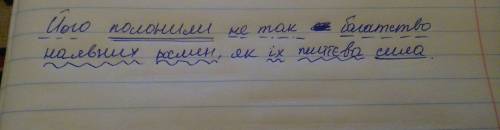 Його полонили не так багатство
наявних ремен, як їх життєва сила.